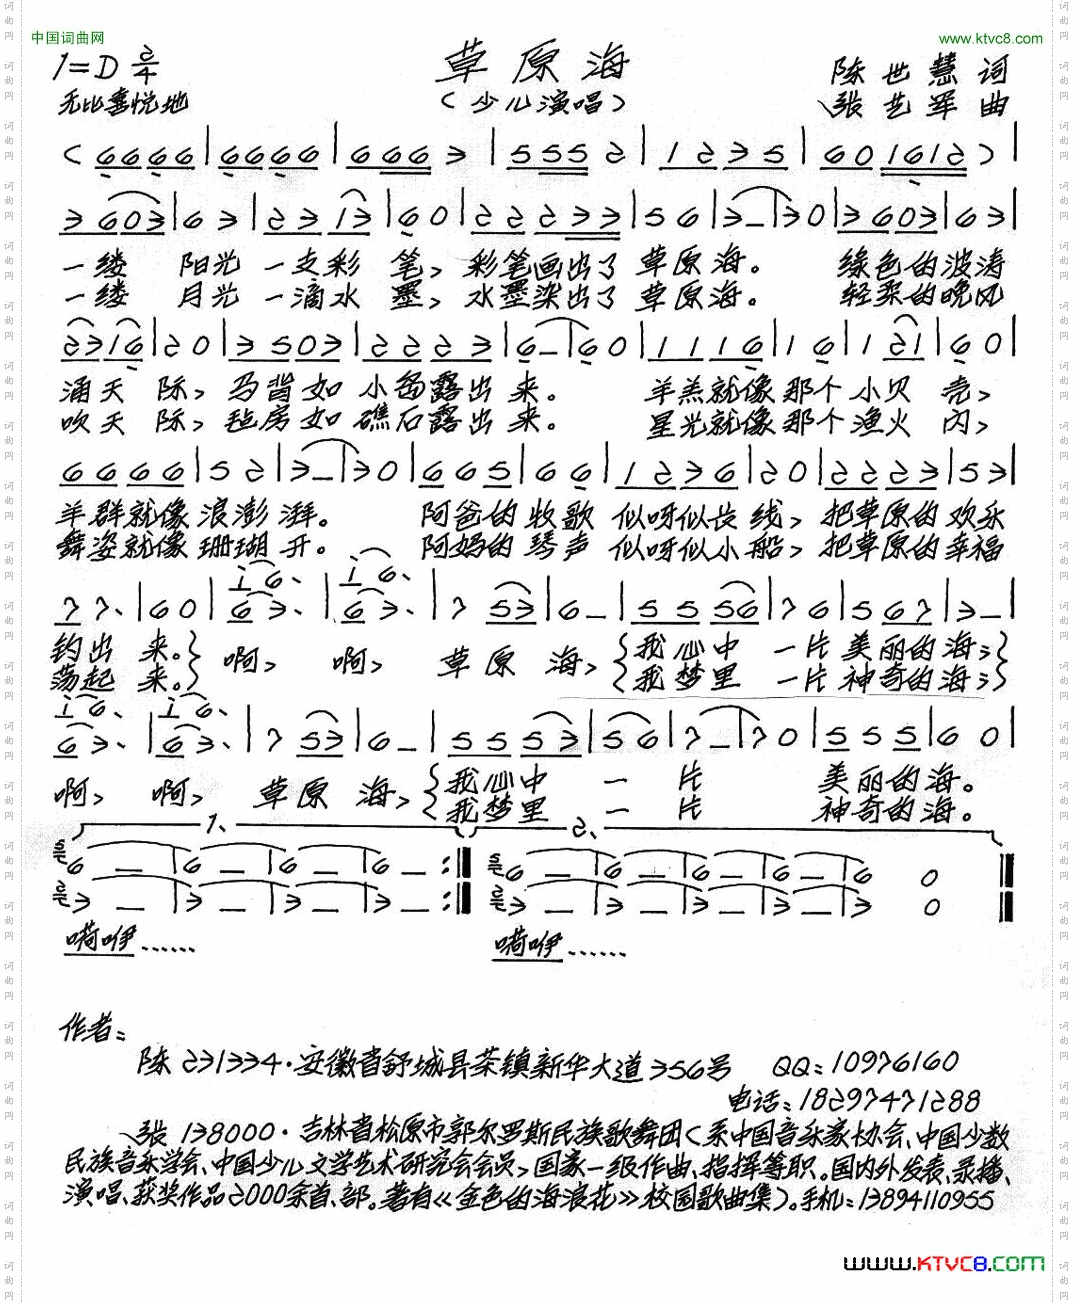 中国词曲网
www.ktvc8.com
1=D 2/4
草原海
陈世慧 词
无比喜悦地
（少儿演唱）
张艺军 曲
（6666|6666|666 3|555 2|1235|60 1612）|
3603|63|2313|60|222233|56|3－|30|3603|63|
一缕 阳光 一支彩 笔，彩笔画出了 草原海。 绿色的波涛
一缕 月光 一滴水 墨，水墨染出了 草原海。 轻柔的晚风
2316|20|3503|2223|6－|60|1116|16|121|60|
涌天 际，马背如 小岛露出 来。 羊羔就像 那个 小贝 壳，
吹天 际，毡房如 礁石露出 来。 星光就像 那个 渔火 闪，
6666|52|3－|30|665|66|1236|20|2223|53|
羊群就像 浪澎 湃。 阿爸的 牧歌 似呀似长 线，把草原的 欢乐
舞姿就像 珊瑚 开。 阿妈的 琴声 似呀似小 船，把草原的 幸福
i6、 i6、
77、|60|63、|63、|7 53|6－|55 56|76|567|3－|
钓出 来。｝啊， 啊， 草原 海，｛我心中 一片 美丽的 海；｝
荡起 来。｝ ｛我梦里 一片 神奇的 海；｝
i6、 i6、
63、|63、|7 53|6－|5553|56|7－|70|555|60|
啊， 啊， 草原 海，｛我心中 一 片 美丽的海。
｛我梦里 一 片 神奇的海。
1、 2、
6－|6－|6－|6－:‖ 6－|6－|6－|6－|6 0‖
3－|3－|3－|3－:‖ 3－|3－|3－|3－|3 0‖
嗬咿…… 嗬咿……
作者：
陈 231334·安徽省舒城县茶镇新华大道356号 QQ：10976160
电话：18297471288
张 138000·吉林省松原市郭尔罗斯民族歌舞团（系中国音乐家协会、中国少数
民族音乐学会、中国少儿文学艺术研究会会员，国家一级作曲、指挥等职。国内外发表、录播、
演唱、获奖作品2000余首、部。著有《金色的海浪花》校园歌曲集）。手机：13894110955
www.KTVC8.com